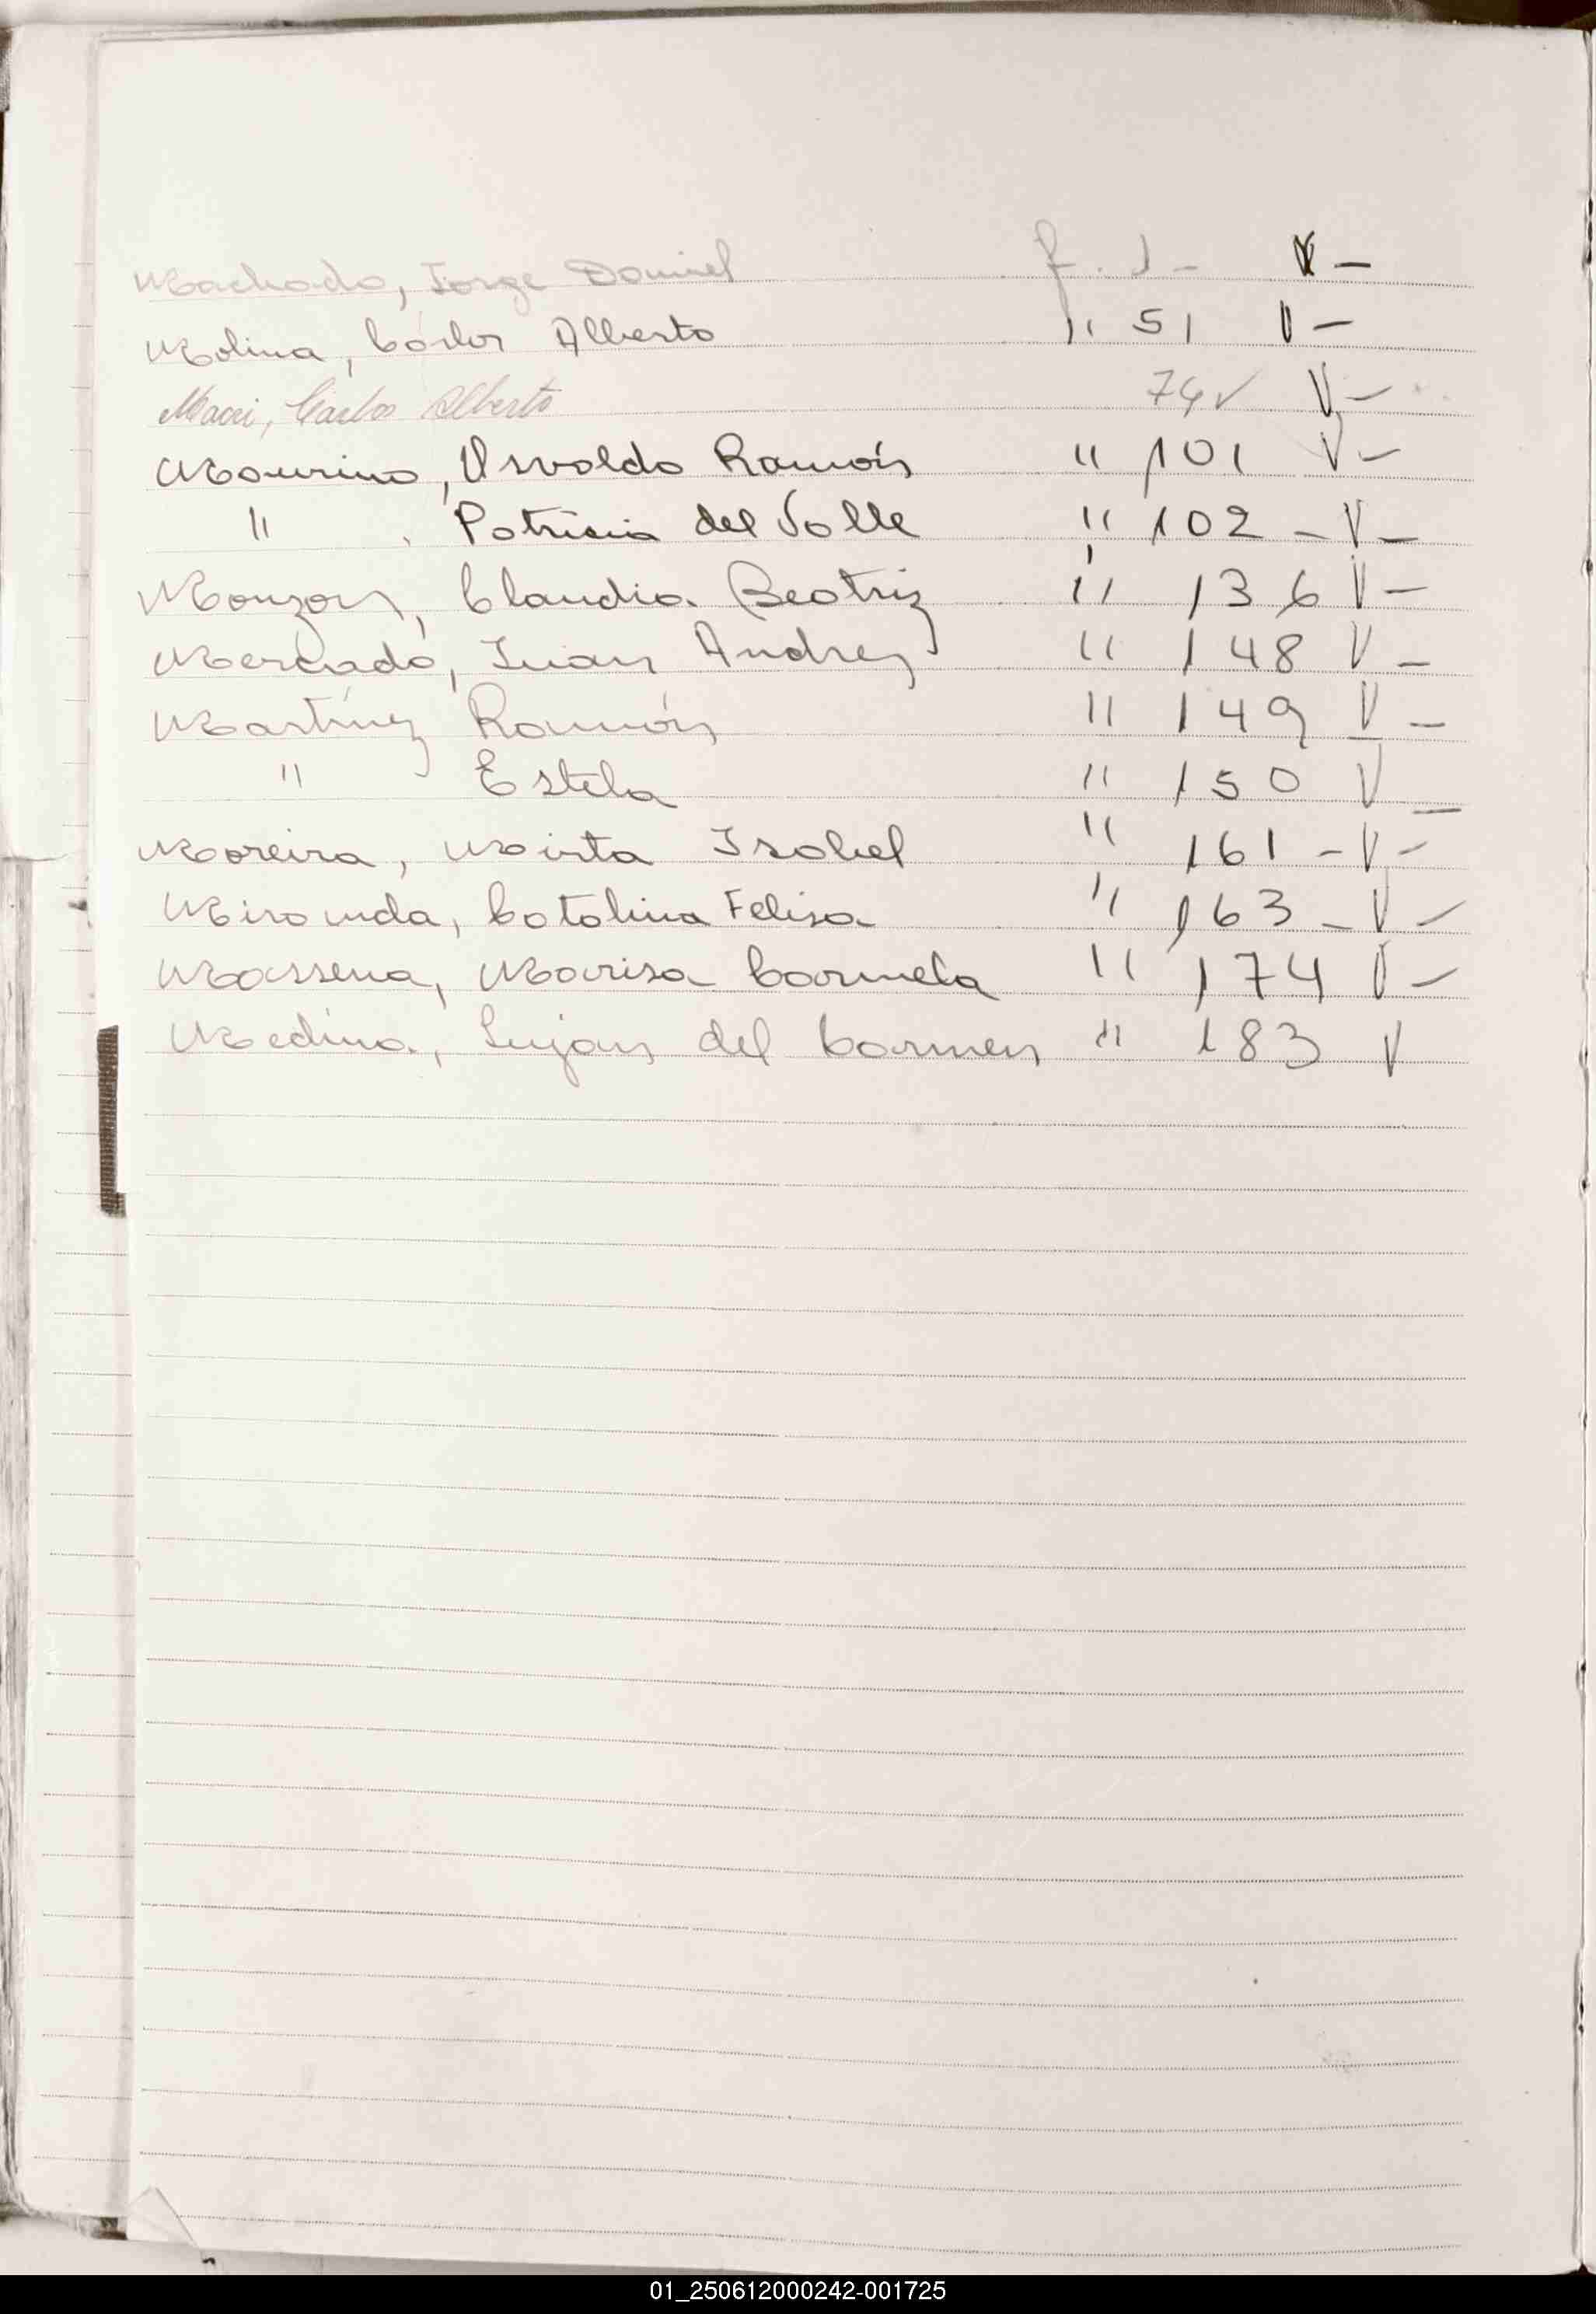 Machado, Jorge Daniel f. 1 - V -
Molina, Carlos Alberto " 51 V -
Macri, Carlos Alberto 74 ✓ V -
Mourino, Osvaldo Ramón " 101 V -
" , Patricia del Valle " 102 - V -
Monzon, Claudia Beatriz " 136 V -
Mercado, Juan Andrez " 148 V -
Martínez Ramón " 149 V -
" Estela " 150 V -
Moreira, Mirta Isabel " 161 - V -
Miranda, Catalina Felisa " 163 - V -
Massena, Marisa Carmela " 174 V -
Medina, Lujan del Carmen " 183 V
01_250612000242-001725